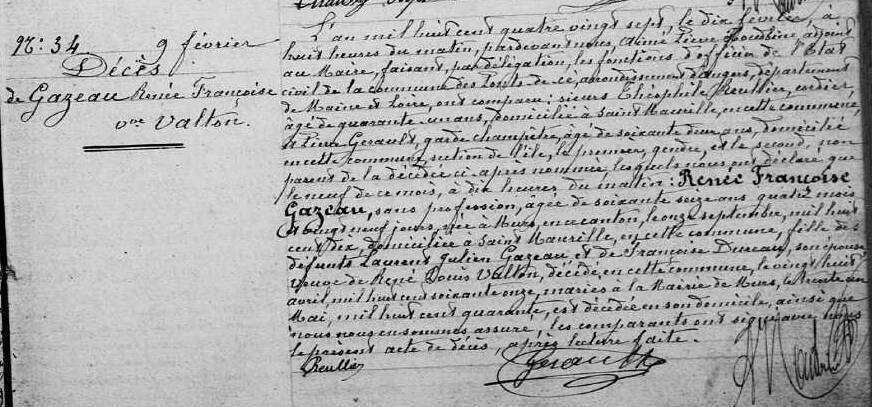 N: 34 9 février
Décès
de Gazeau Renée Françoise
vve Valton.
L'an mil huit cent quatre vingt sept, le dix février, à
huit heures du matin, pardevant nous, Aimé Pierre adjoint
au Maire, faisant, par délégation, les fonctions d'officier de l'Etat
civil de la commune des Ponts de cé, arrondissement d'Angers, département
de Maine et Loire, ont comparu: sieurs Théophile Reullier, cordier,
âgé de quarante un ans, domicilié à Saint Maurille, en cette commune,
et Pierre Gerault, garde champêtre, âgé de soixante deux ans, domicilié
en cette commune, section de l'île, le premier, gendre, et le second, non
parent de la décédée ci-après nommée, lesquels nous ont déclaré que
le neuf de ce mois, à dix heures du matin: Renée Françoise
Gazeau, sans profession, agée de soixante seize ans quatre mois
et vingt neuf jours, née à Murs, en ce canton, le onze septembre, mil huit
cent dix, domiciliée à Saint Maurille, en cette commune, fille des
défunts Laurent Julien Gazeau et de Françoise Dureau, son épouse
veuve de René Louis Valton, décédé en cette commune, le vingt huit
avril mil huit cent soixante onze, mariés à la Mairie de Murs, le trente un
Mai, mil huit cent quarante, est décédée en son domicile, ainsi que
nous nous en sommes assuré, les comparants ont signé avec nous
le présent acte de décès, après lecture faite.
Reullier Gerault